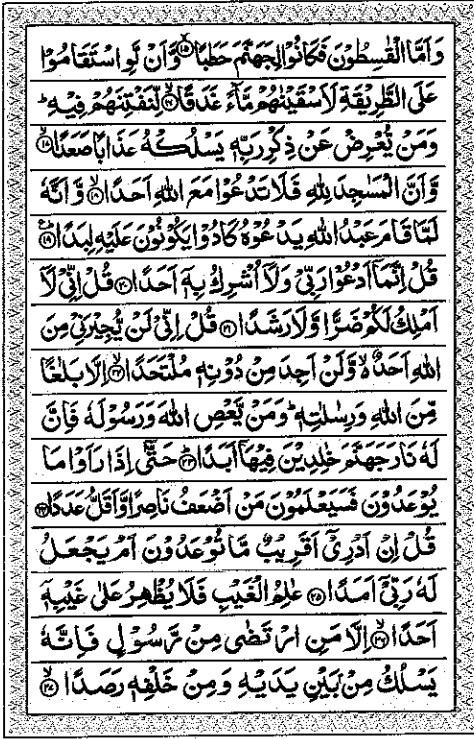 وَاَمَّا الْقٰسِطُوْنَ فَكَانُوْا لِجَهَنَّمَ حَطَبًا ۙ﴿۱۵﴾ وَّاَنْ لَّوِ اسْتَقَامُوْا
عَلَى الطَّرِيْقَةِ لَاَسْقَيْنٰهُمْ مَّآءً غَدَقًا ۙ﴿۱۶﴾ لِّنَفْتِنَهُمْ فِيْهِ ؕ
وَمَنْ يُّعْرِضْ عَنْ ذِكْرِ رَبِّهٖ يَسْلُكْهُ عَذَابًا صَعَدًا ۙ﴿۱۷﴾
وَّاَنَّ الْمَسٰجِدَ لِلّٰهِ فَلَا تَدْعُوْا مَعَ اللّٰهِ اَحَدًا ۙ﴿۱۸﴾ وَّاَنَّهٗ
لَمَّا قَامَ عَبْدُ اللّٰهِ يَدْعُوْهُ كَادُوْا يَكُوْنُوْنَ عَلَيْهِ لِبَدًا ؕ﴿۱۹﴾
قُلْ اِنَّمَاۤ اَدْعُوْا رَبِّيْ وَلَاۤ اُشْرِكُ بِهٖۤ اَحَدًا ﴿۲۰﴾ قُلْ اِنِّيْ لَاۤ
اَمْلِكُ لَكُمْ ضَرًّا وَّلَا رَشَدًا ﴿۲۱﴾ قُلْ اِنِّيْ لَنْ يُّجِيْرَنِيْ مِنَ
اللّٰهِ اَحَدٌ ۙ۬ وَّلَنْ اَجِدَ مِنْ دُوْنِهٖ مُلْتَحَدًا ۙ﴿۲۲﴾ اِلَّا بَلٰغًا
مِّنَ اللّٰهِ وَرِسٰلٰتِهٖ ؕ وَمَنْ يَّعْصِ اللّٰهَ وَرَسُوْلَهٗ فَاِنَّ
لَهٗ نَارَ جَهَنَّمَ خٰلِدِيْنَ فِيْهَاۤ اَبَدًا ؕ﴿۲۳﴾ حَتّٰۤى اِذَا رَاَوْا مَا
يُوْعَدُوْنَ فَسَيَعْلَمُوْنَ مَنْ اَضْعَفُ نَاصِرًا وَّاَقَلُّ عَدَدًا ﴿۲۴﴾
قُلْ اِنْ اَدْرِيْۤ اَقَرِيْبٌ مَّا تُوْعَدُوْنَ اَمْ يَجْعَلُ
لَهٗ رَبِّيْۤ اَمَدًا ﴿۲۵﴾ عٰلِمُ الْغَيْبِ فَلَا يُظْهِرُ عَلٰى غَيْبِهٖۤ
اَحَدًا ۙ﴿۲۶﴾ اِلَّا مَنِ ارْتَضٰى مِنْ رَّسُوْلٍ فَاِنَّهٗ
يَسْلُكُ مِنْۢ بَيْنِ يَدَيْهِ وَمِنْ خَلْفِهٖ رَصَدًا ۙ﴿۲۷﴾